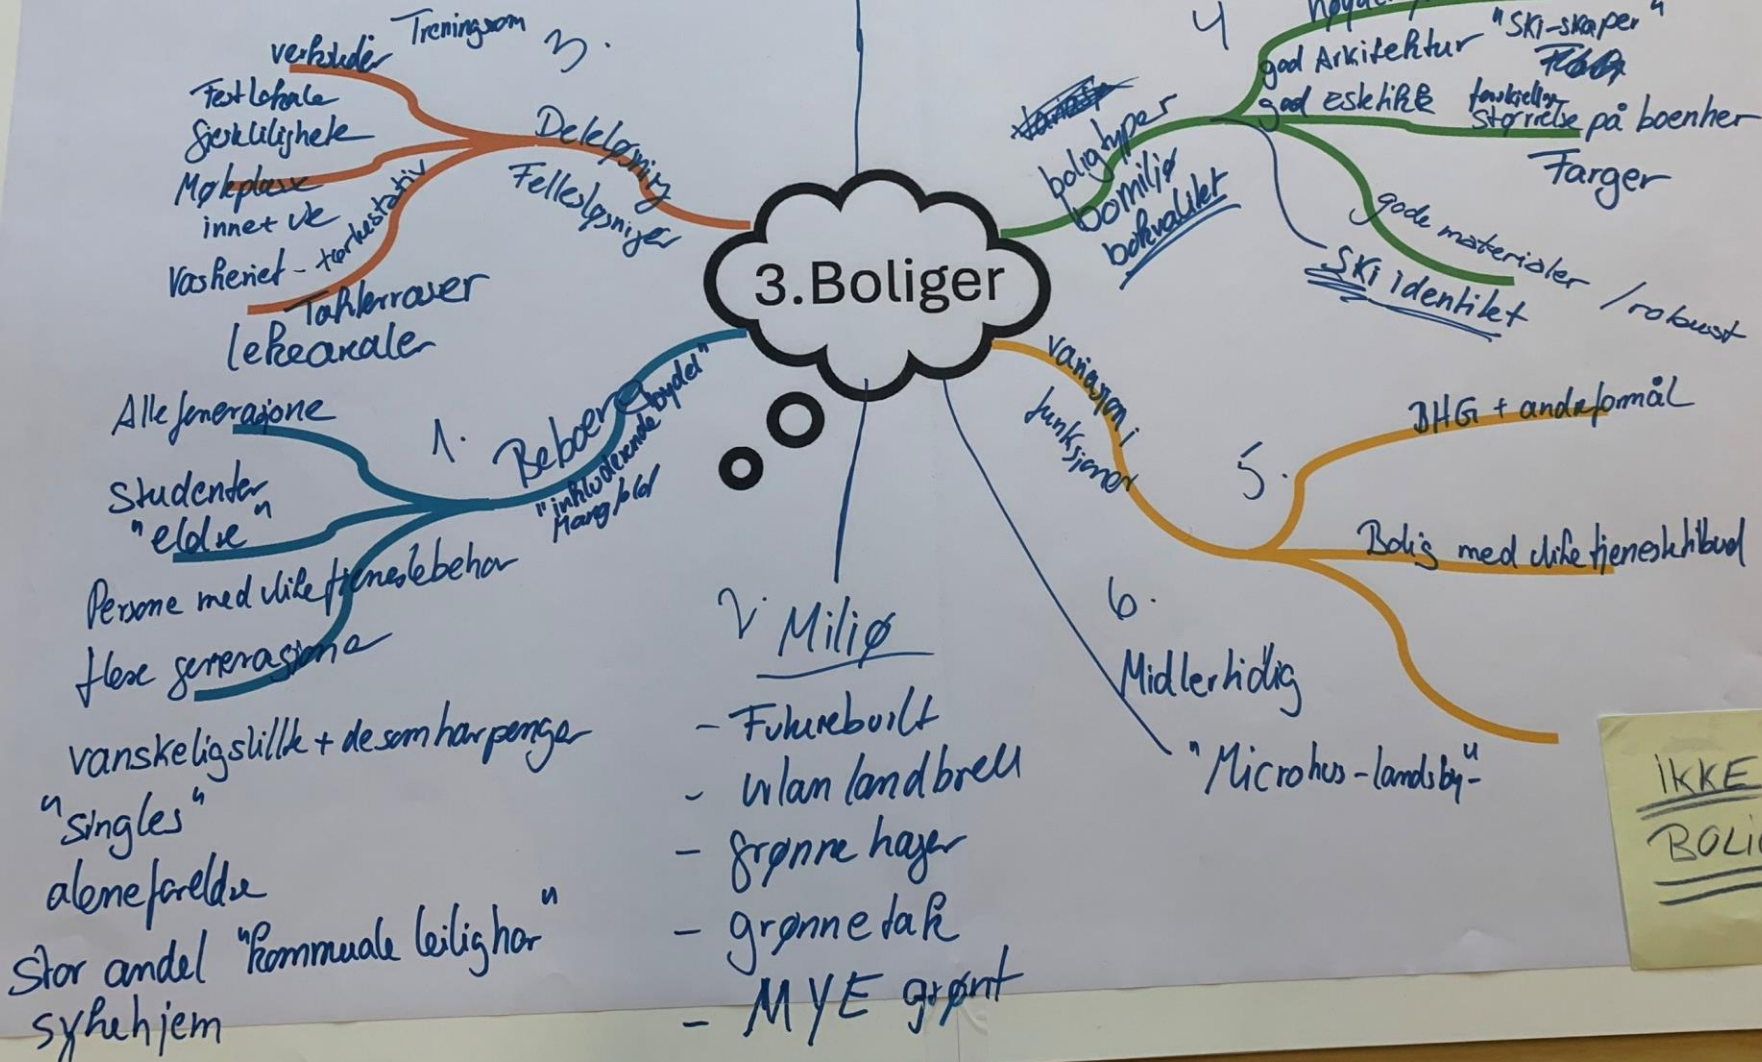 3.Boliger
3.
Treningsom
verksteder
Festlokale
Gjestelilighete
Møteplasse
inne+ute
Vaskeriet - tørkestativ
Takterrasser
lekearealer
Deleløsning
Fellesløsniger
1.
Beboere
"inkluderende bydel"
Mangfold
Alle generasjone
Studenter
"eldre"
Persone med ulike tjenestebehov
flere generasjone
vanskeligstillte + de som har penger
"singles"
aleneforeldre
Stor andel "kommuale leilighor"
sykehjem
2.
Miljø
- Futurebuilt
- urban landbruk
- grønne hager
- grønne tak
- MYE grønt
4
boligtyper
bomiljø
bokvalitet
god Arkitektur
"SKI-skaper"
god Estetikk
forskjellig
størrelse på boenher
Farger
gode materialer / robust
SKI identitet
variasjon i
funksjoner
5.
BHG + andreformål
Bolig med ulike tjenestetilbud
6.
Midlertidig
"Microhus-landsby"-
IKKE